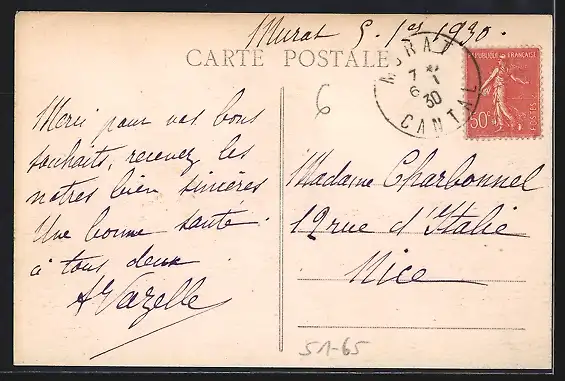 Murat 5. 1er 1930.
CARTE POSTALE
MURAT
7 1
6 30
CANTAL
REPUBLIQUE FRANÇAISE
50c
POSTES
6
Merci pour vos bons
souhaits, recevez les
notres bien sincères
Une bonne santé.
à tous deux
A Vazelle
Madame Charbonnel
12 rue d'Italie
Nice
51-65